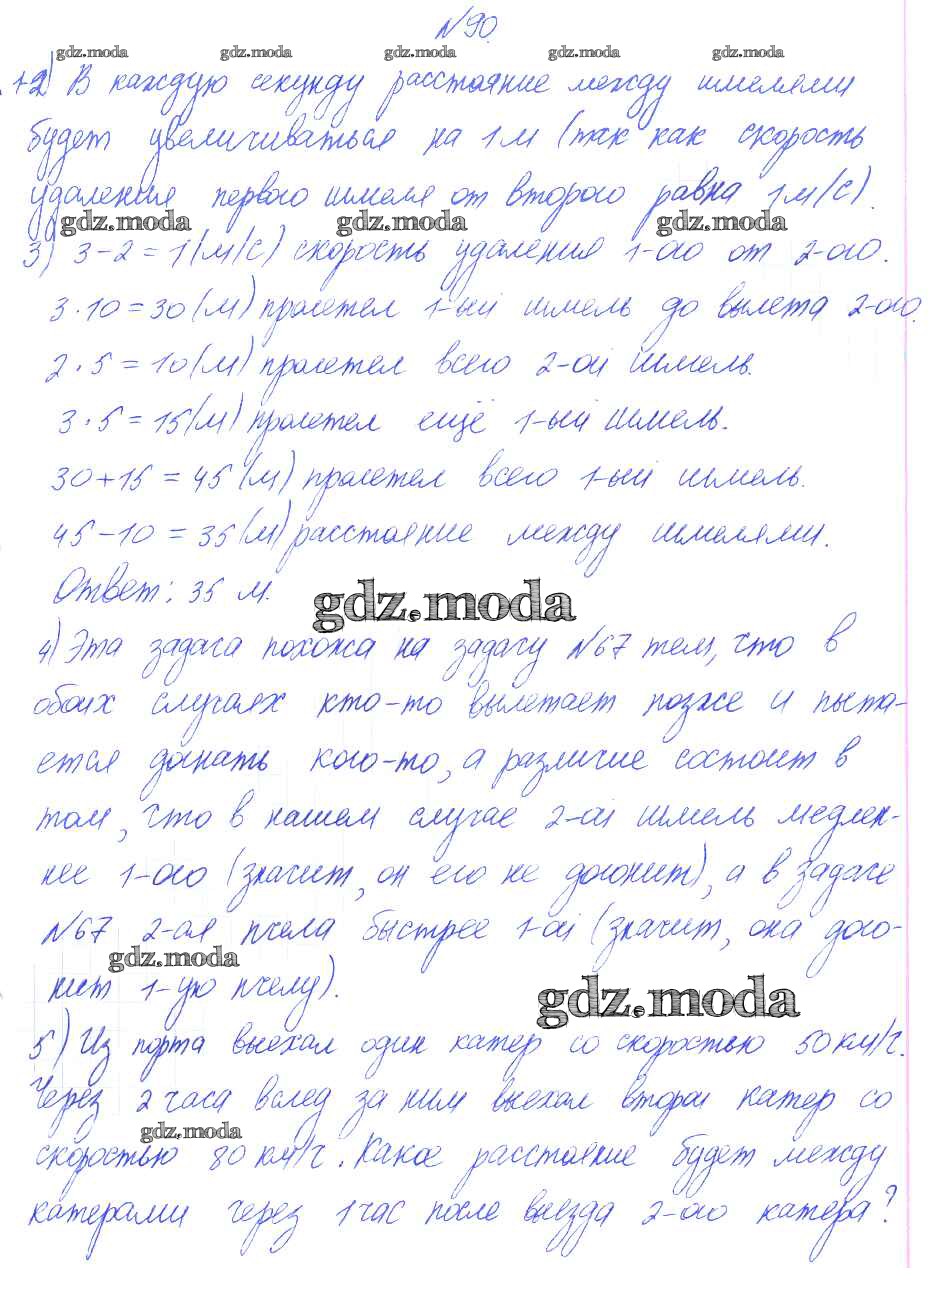 №90.
gdz.moda gdz.moda gdz.moda gdz.moda gdz.moda
1-2) В каждую секунду расстояние между шмелями
будет увеличиваться на 1 м (так как скорость
удаления первого шмеля от второго равна 1 м/с).
gdz.moda gdz.moda gdz.moda
3) 3-2=1(м/с) скорость удаления 1-ого от 2-ого.
3·10=30(м) пролетел 1-ый шмель до вылета 2-ого.
2·5=10(м) пролетел всего 2-ой шмель.
3·5=15(м) пролетел ещё 1-ый шмель.
30+15=45(м) пролетел всего 1-ый шмель.
45-10=35(м) расстояние между шмелями.
Ответ: 35 м.
gdz.moda
4) Эта задача похожа на задачу №67 тем, что в
обоих случаях кто-то вылетает позже и пыта-
ется догнать кого-то, а различие состоит в
том, что в нашем случае 2-ой шмель медлен-
нее 1-ого (значит, он его не догонит), а в задаче
№67 2-ая пчела быстрее 1-ой (значит, она дого-
gdz.moda
нит 1-ую пчелу).
gdz.moda
5) Из порта выехал один катер со скоростью 50 км/ч.
Через 2 часа вслед за ним выехал второй катер со
gdz.moda
скоростью 80 км/ч. Какое расстояние будет между
катерами через 1 час после выезда 2-ого катера?